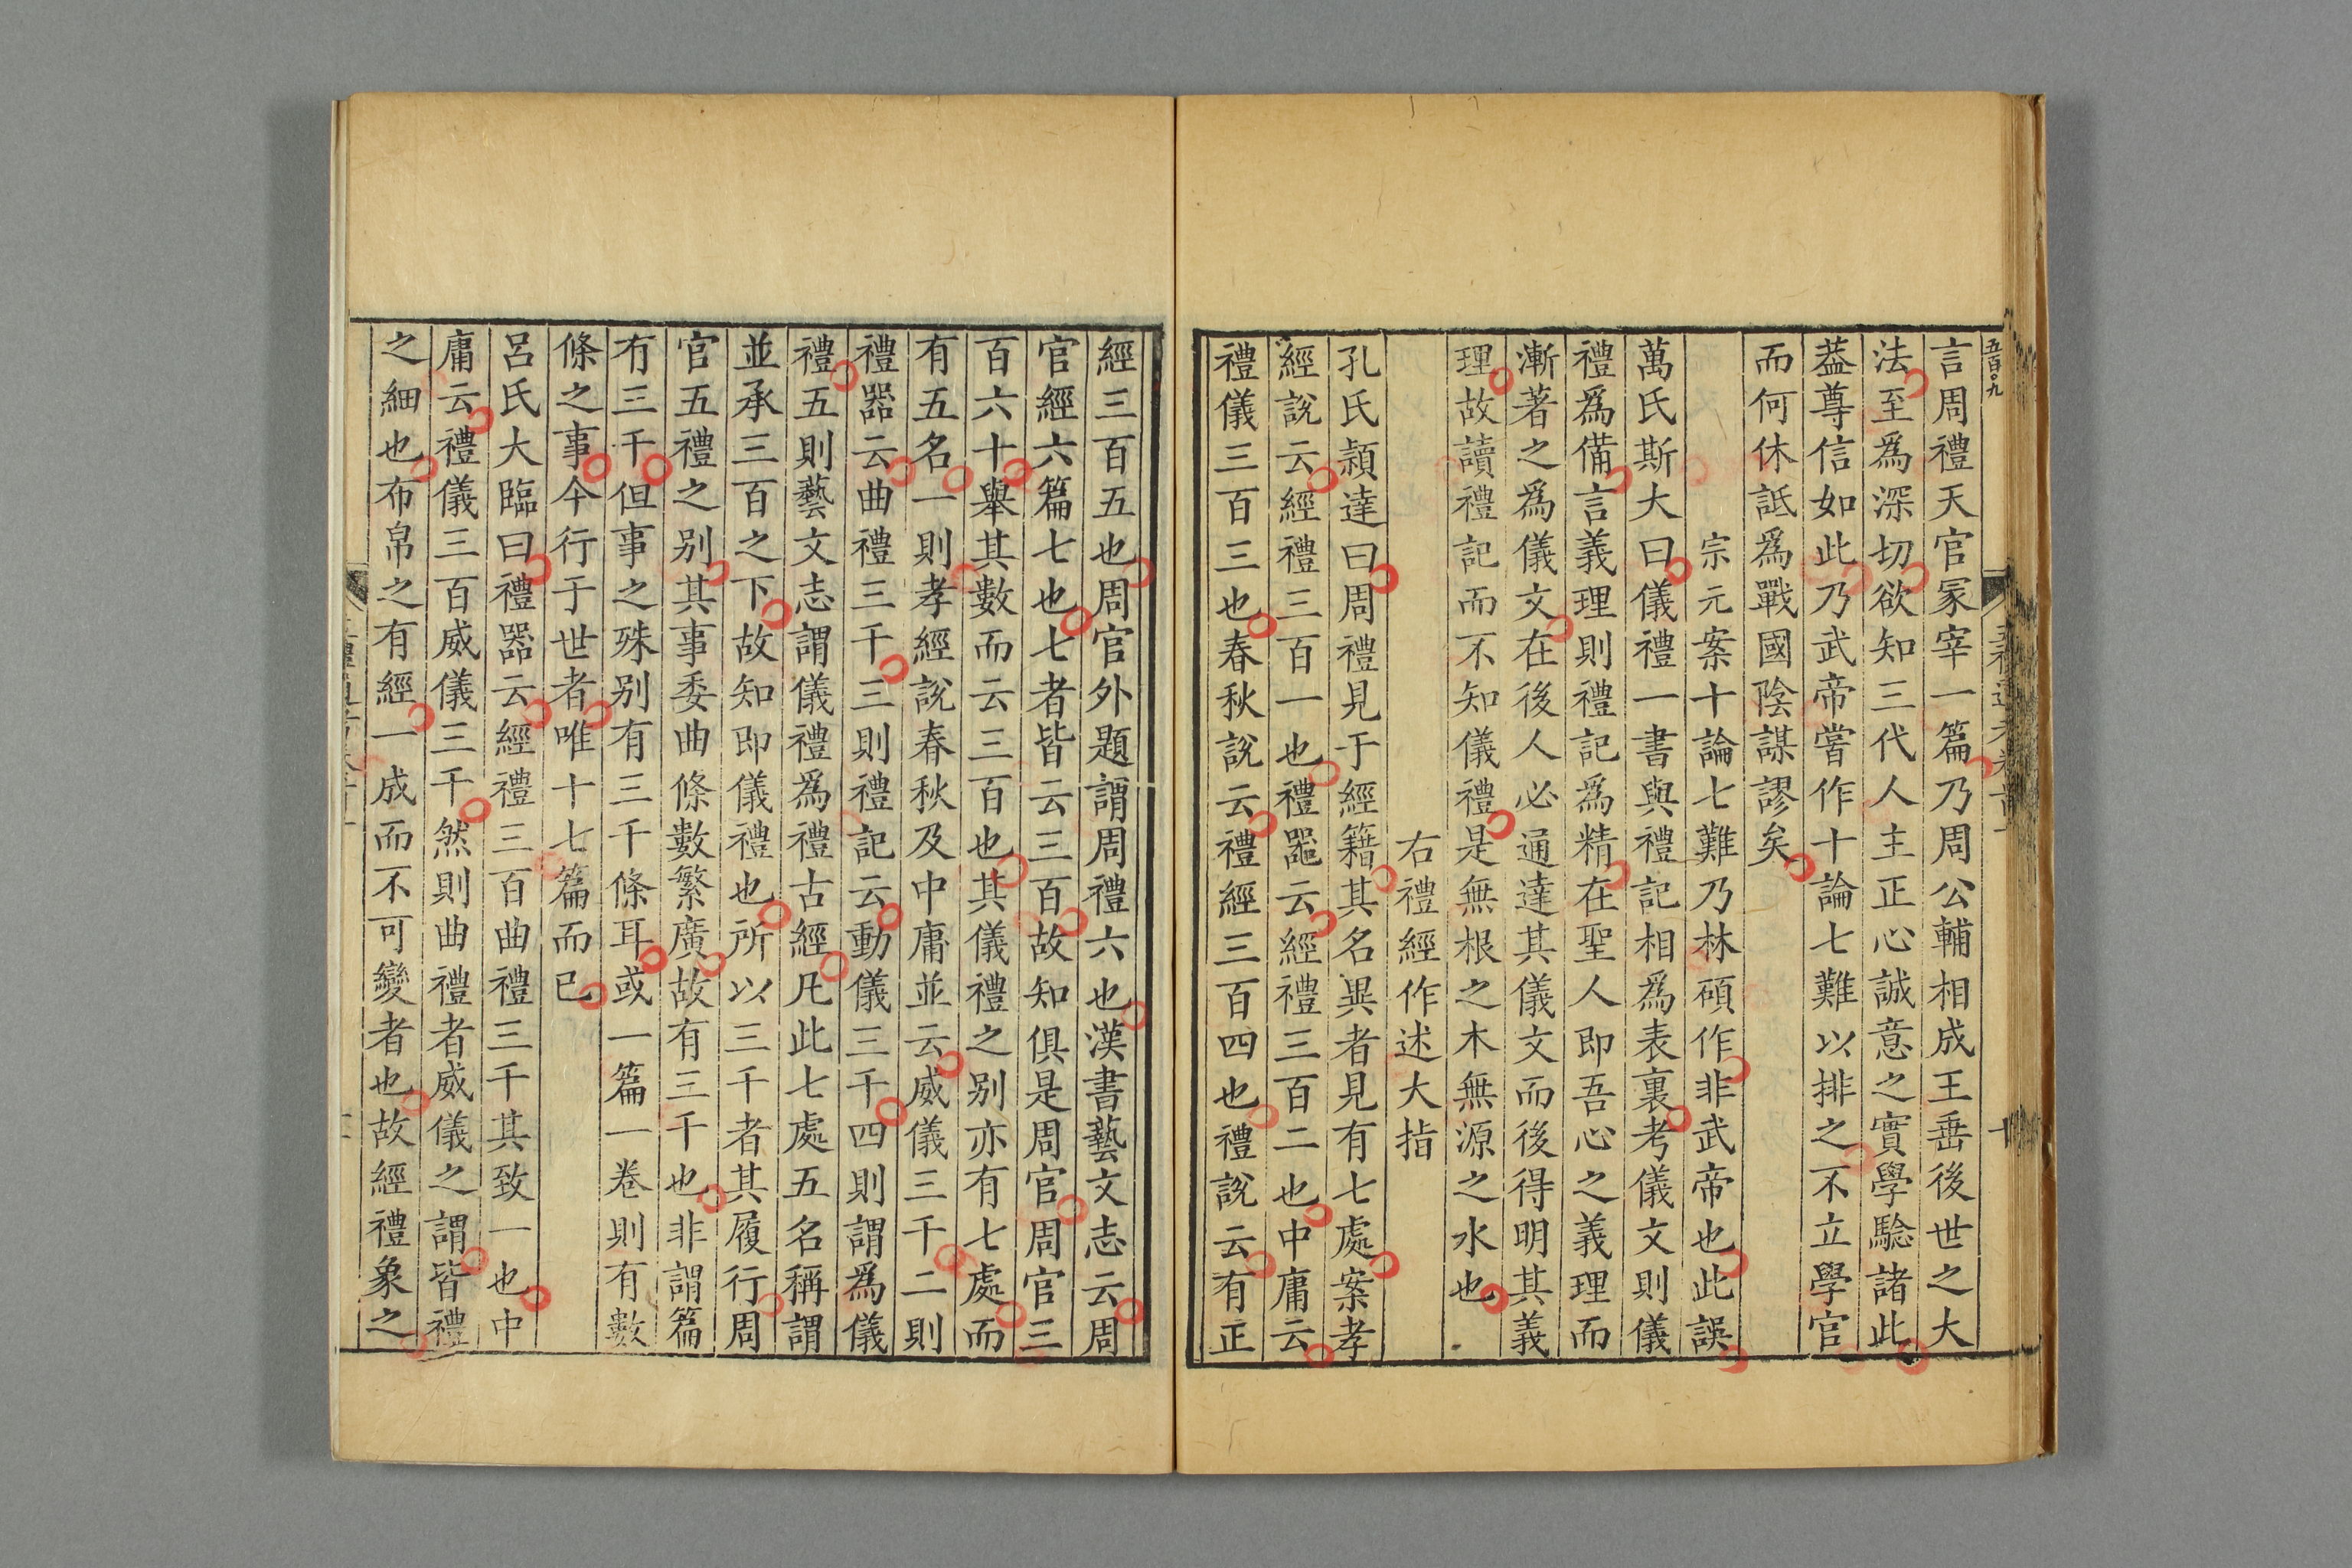 五百九
言周禮天官冢宰一篇乃周公輔相成王垂後世之大
法至爲深切欲知三代人主正心誠意之實學騐諸此
葢尊信如此乃武帝嘗作十論七難以排之不立學官
而何休詆爲戰國陰謀謬矣
宗元案十論七難乃林碩作非武帝也此誤
萬氏斯大曰儀禮一書與禮記相爲表裏考儀文則儀
禮爲備言義理則禮記爲精在聖人即吾心之義理而
漸著之爲儀文在後人必通達其儀文而後得明其義
理故讀禮記而不知儀禮是無根之木無源之水也
右禮經作述大指
孔氏頴達曰周禮見于經籍其名異者見有七處案孝
經說云經禮三百一也禮噐云經禮三百二也中庸云
禮儀三百三也春秋說云禮經三百四也禮說云有正
經三百五也周官外題謂周禮六也漢書藝文志云周
官經六篇七也七者皆云三百故知俱是周官周官三
百六十舉其數而云三百也其儀禮之别亦有七處而
有五名一則孝經說春秋及中庸並云威儀三千二則
禮器云曲禮三千三則禮記云動儀三千四則謂爲儀
禮五則藝文志謂儀禮爲禮古經凡此七處五名稱謂
並承三百之下故知即儀禮也所以三千者其履行周
官五禮之别其事委曲條數繁廣故有三千也非謂篇
有三千但事之殊别有三千條耳或一篇一卷則有數
條之事今行于世者唯十七篇而已
呂氏大臨曰禮器云經禮三百曲禮三千其致一也中
庸云禮儀三百威儀三千然則曲禮者威儀之謂皆禮
之細也布帛之有經一成而不可變者也故經禮象之